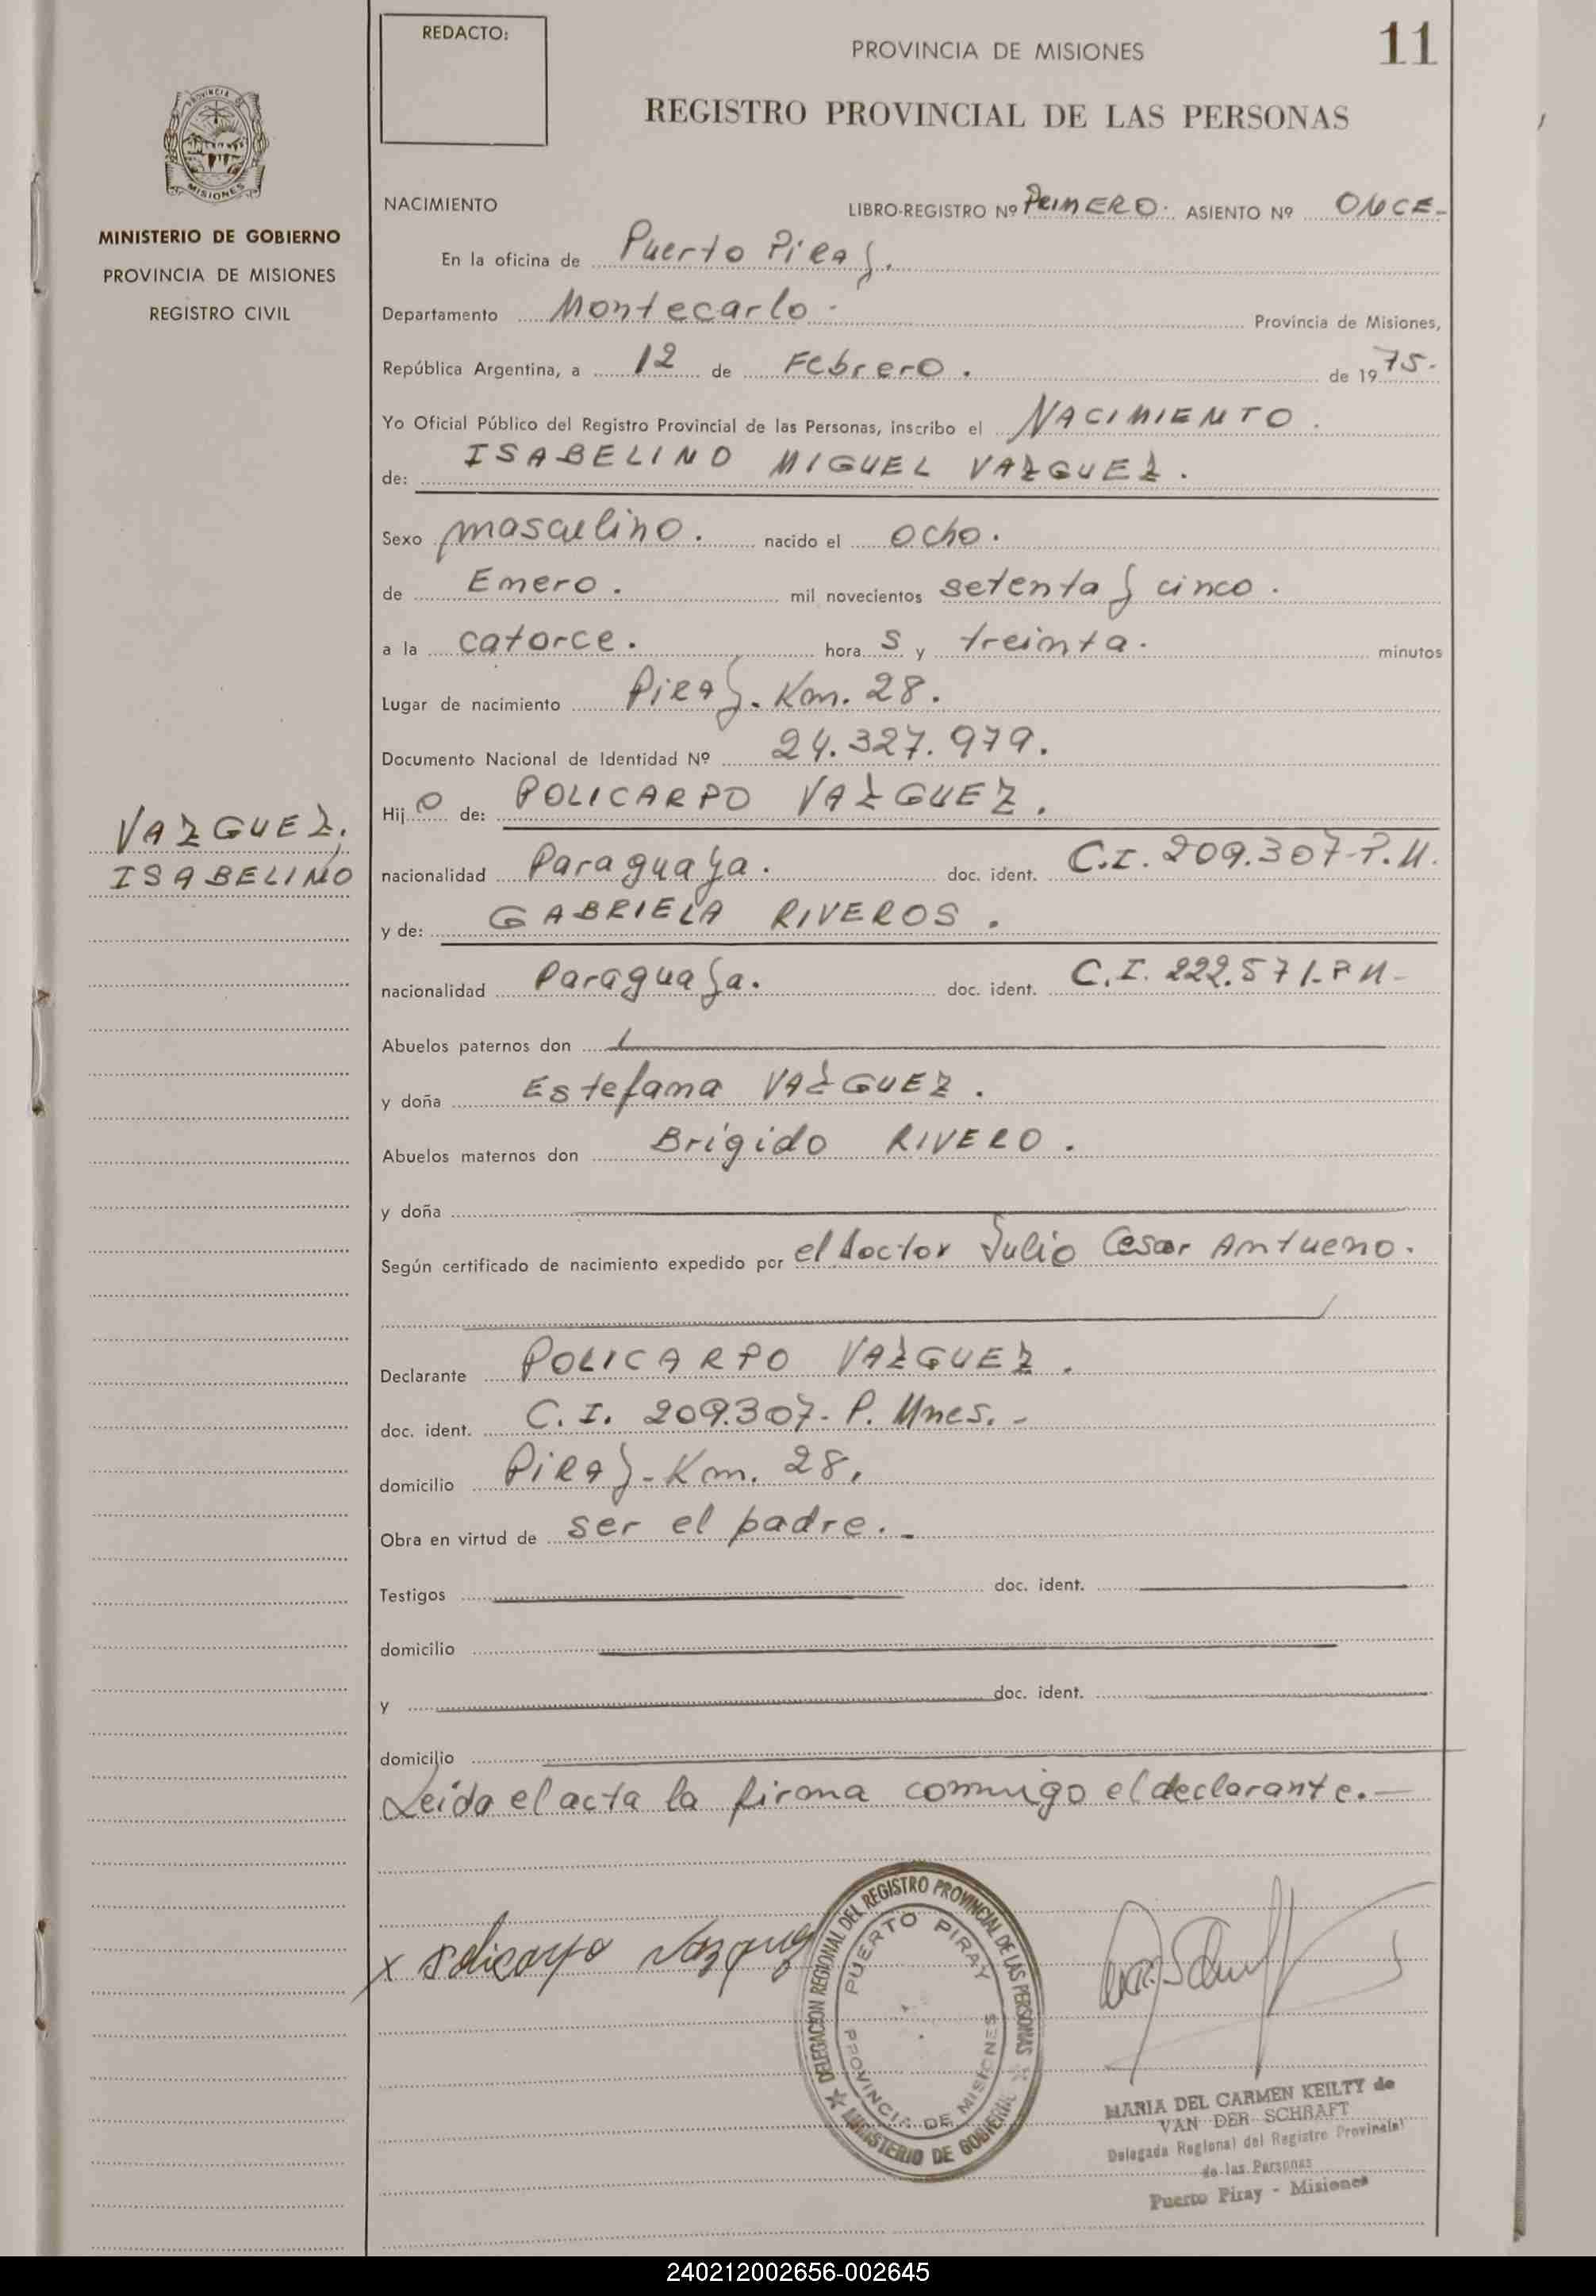 REDACTO:
PROVINCIA DE MISIONES
11
REGISTRO PROVINCIAL DE LAS PERSONAS
PROVINCIA DE
MISIONES
MINISTERIO DE GOBIERNO
PROVINCIA DE MISIONES
REGISTRO CIVIL
NACIMIENTO
LIBRO-REGISTRO Nº PRIMERO. ASIENTO Nº ONCE-
En la oficina de Puerto Piray.
Departamento Montecarlo - Provincia de Misiones,
República Argentina, a 12 de Febrero. de 1975-
Yo Oficial Público del Registro Provincial de las Personas, inscribo el NACIMIENTO.
de: ISABELINO MIGUEL VAZQUEZ.
Sexo masculino. nacido el ocho.
de Enero. mil novecientos setenta y cinco.
a la catorce. hora s y treinta. minutos
Lugar de nacimiento Piray. Km. 28.
Documento Nacional de Identidad Nº 24.327.979.
Hijo de: POLICARPO VAZQUEZ.
VAZQUEZ,
ISABELINO
nacionalidad Paraguaya. doc. ident. C.I. 209.307-P.M.
y de: GABRIELA RIVEROS.
nacionalidad Paraguaya. doc. ident. C.I. 222.571-P.M-
Abuelos paternos don
y doña Estefana VAZQUEZ.
Abuelos maternos don Brígido RIVERO.
y doña
Según certificado de nacimiento expedido por el doctor Julio Cesar Antueno.
Declarante POLICARPO VAZQUEZ.
doc. ident. C.I. 209.307- P. Mnes.-
domicilio Piray-Km. 28.
Obra en virtud de ser el padre.-
Testigos doc. ident.
domicilio
y doc. ident.
domicilio
Leída el acta la firma conmigo el declarante.-
x Policarpo Vazquez
DELEGACION REGIONAL DEL REGISTRO PROVINCIAL DE LAS PERSONAS
MINISTERIO DE GOBIERNO
PUERTO PIRAY
PROVINCIA DE MISIONES
MARIA DEL CARMEN KEILTY de
VAN DER SCHRAFT
Delegada Regional del Registro Provincial
de las Personas
Puerto Piray - Misiones
240212002656-002645